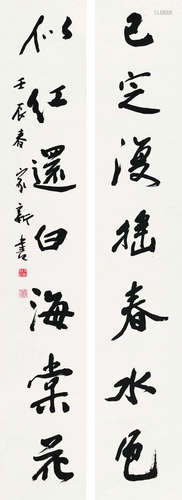 已定漫摇春水色
似红還白海棠花
壬辰春 家新書